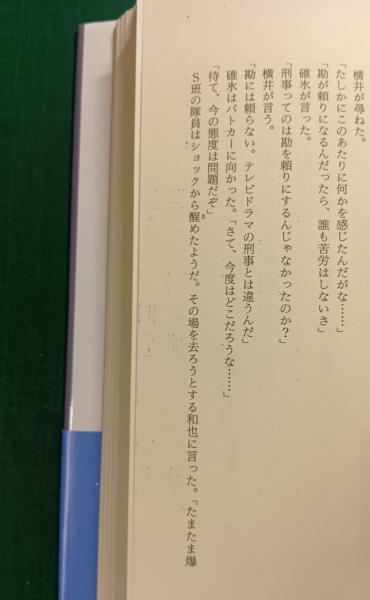 横井が尋ねた。
「たしかにこのあたりに何かを感じたんだがな……」
「勘が頼りになるんだったら、誰も苦労はしないさ」
碓氷が言った。
「刑事ってのは勘を頼りにするんじゃなかったのか？」
横井が言う。
「勘には頼らない。テレビドラマの刑事とは違うんだ」
碓氷はパトカーに向かった。「さて、今度はどこだろうな……」
「待て、今の態度は問題だぞ」
Ｓ班の隊員はショックから醒めたようだ。その場を去ろうとする和也に言った。「たまたま爆